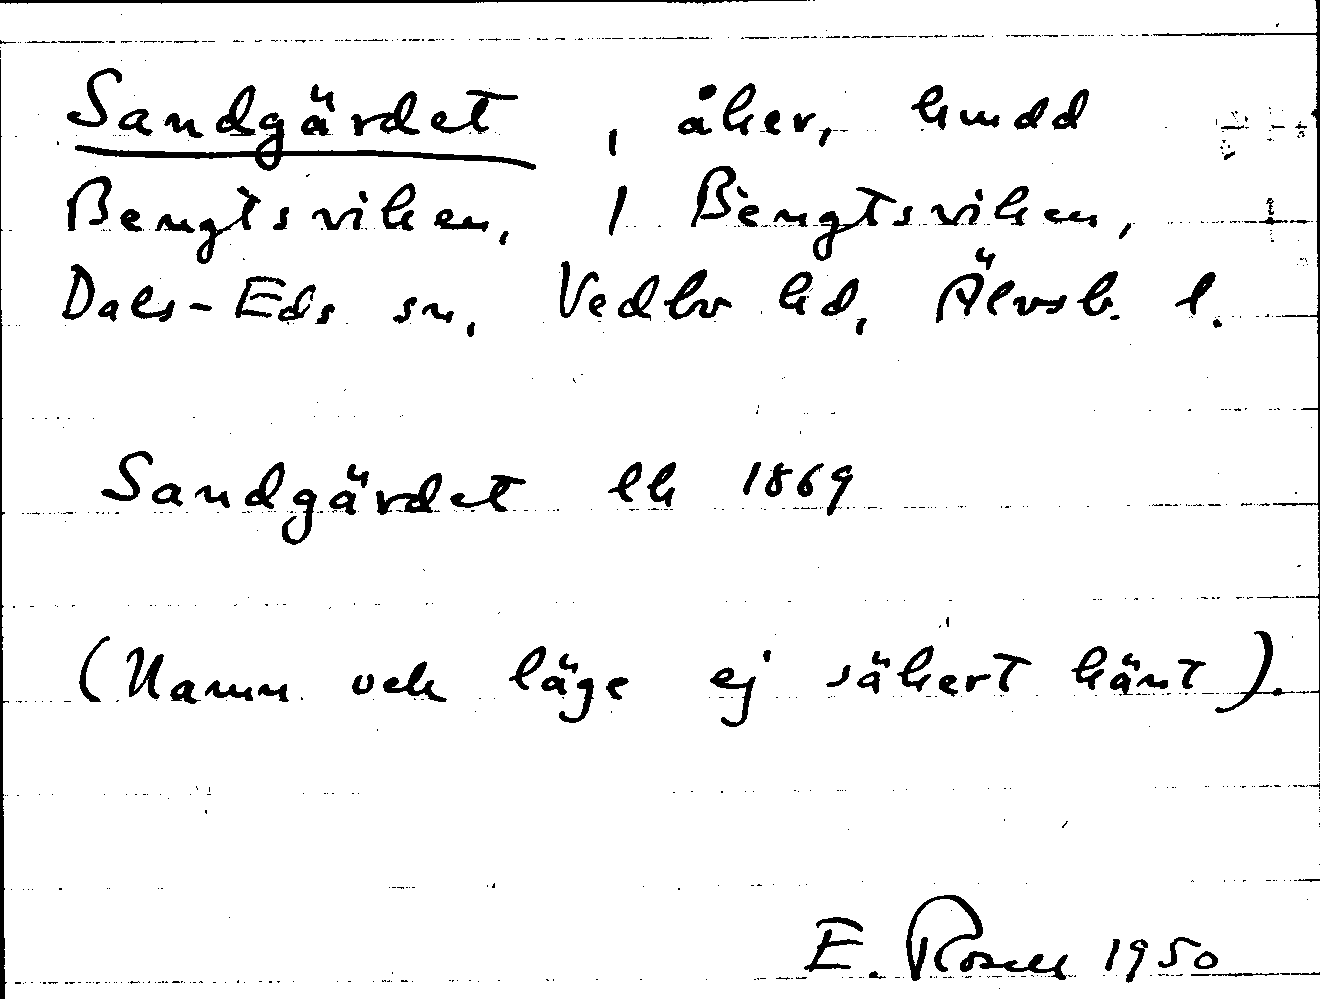 Sandgärdet, åker, kmdd
Bengtsviken, 1 Bengtsviken,
Dals-Eds sn, Vedbo hd, Älvsb. l.
Sandgärdet lk 1869
(Namn och läge ej säkert känt).
E. Rosell 1950